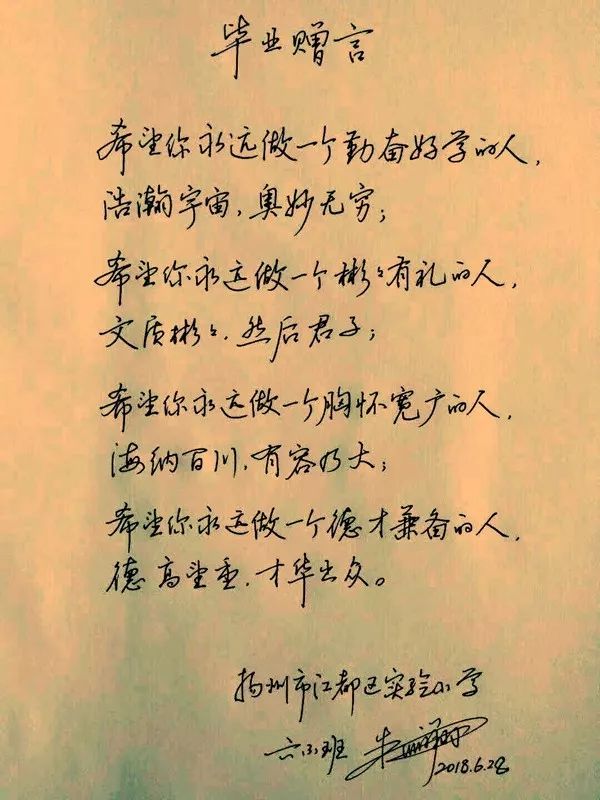 毕业赠言
希望你永远做一个勤奋好学的人,
浩瀚宇宙,奥妙无穷;
希望你永远做一个彬々有礼的人,
文质彬々,然后君子;
希望你永远做一个胸怀宽广的人,
海纳百川,有容乃大;
希望你永远做一个德才兼备的人,
德高望重,才华出众。
扬州市江都区实验小学
六(5)班 朱
2018.6.28